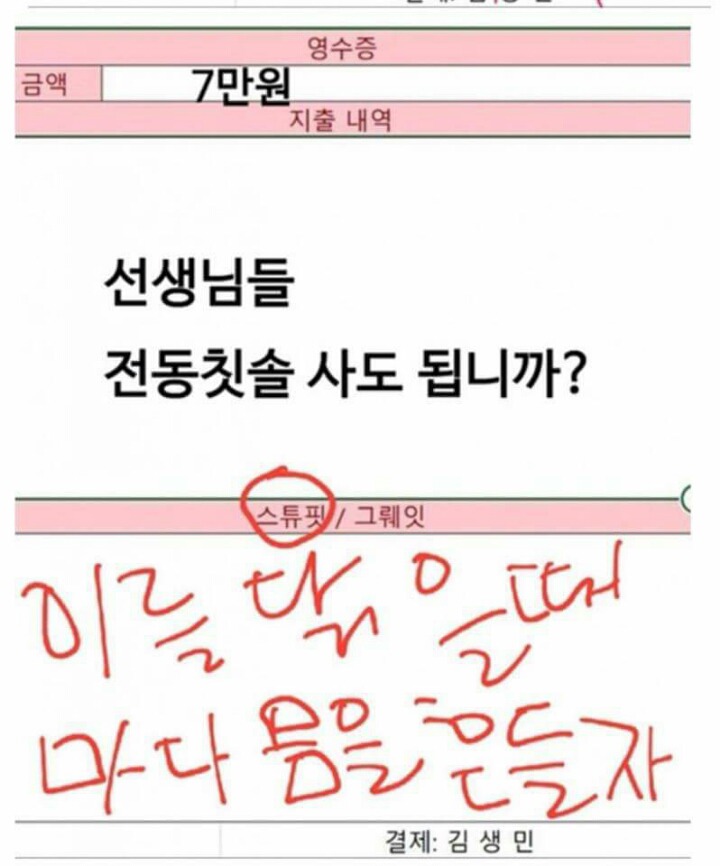 영수증
금액 7만원
지출 내역
선생님들
전동칫솔 사도 됩니까?
스튜핏 / 그뤠잇
이를 닦을때
마다 몸을 흔들자
결제: 김 생 민